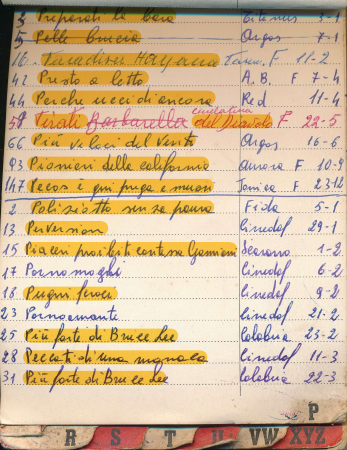 5 Preparati la bara Titanus 3-1
5 Pelle brucia Argos 7-1
16 Paradiso Hayana F. 11-2
42 Posto a letto A.B. F 7-4
44 Perche uccidi ancora Red 11-4
58 Tirati Barbarella del Diavolo F 22-5
66 Più veloci del vento Argos 16-6
93 Pionieri della california Aurora F 10-9
147 Pecos è qui prega e muori Jonica F 23-12
2 Poliziotto senza paura Fida 5-1
13 Perversion Cinedif 29-1
15 Piaceri proibiti contessa Gamiani 1-2
17 Pornomoghi Cinedif 6-2
18 Pugni feroci Cinedif 9-2
23 Pornoamante Cinedif 21-2
25 Più forte di Bruce Lee Calabria 23-2
28 Peccati di una monaca Cinedif 11-3
31 Più forte di Bruce Lee Calabria 22-3
P
R S T U VW XYZ